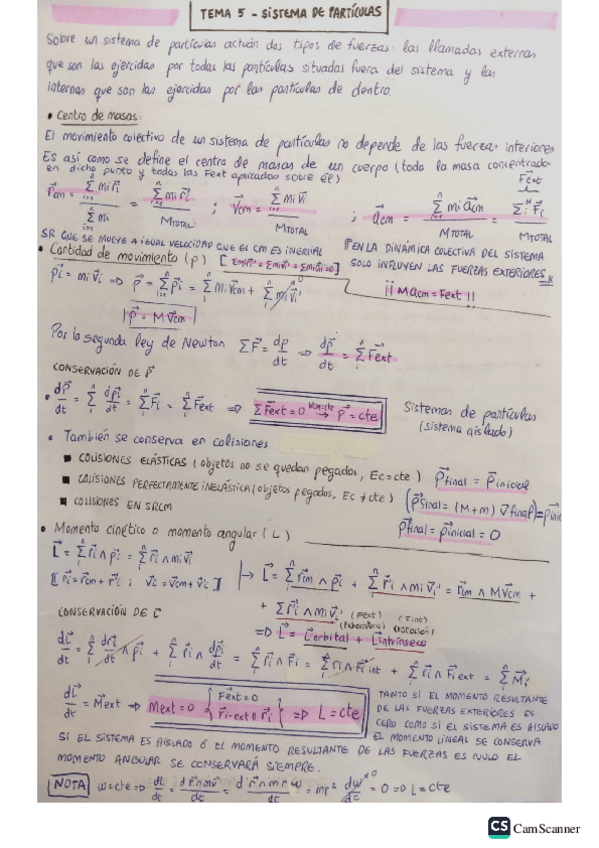 TEMA 5 - SISTEMA DE PARTÍCULAS
Sobre un sistema de partículas actúan dos tipos de fuerzas: las llamadas externas
que son las ejercidas por todas las partículas situadas fuera del sistema y las
internas que son las ejercidas por las partículas de dentro.
• Centro de masas:
El movimiento colectivo de un sistema de partículas no depende de las fuerzas interiores
Es así como se define el centro de masas de un cuerpo (toda la masa concentrada
en dicho punto y todas las Fext aplicadas sobre él)
r⃗cm = Σ mi r⃗i / Σ mi = Σ mi r⃗i / MTOTAL ; v⃗cm = Σ mi v⃗i / MTOTAL ; a⃗cm = Σ mi a⃗cm / MTOTAL = Σ F⃗i / MTOTAL
Fext
SR QUE SE MUEVE A IGUAL VELOCIDAD QUE EL CM ES INERCIAL
EN LA DINÁMICA COLECTIVA DEL SISTEMA
SOLO INFLUYEN LAS FUERZAS EXTERIORES
• Cantidad de movimiento (p)
¡¡ Macm = Fext !!
p⃗i = mi v⃗i ⇒ p⃗ = Σ p⃗i = Σ mi v⃗cm + Σ mi v⃗i'
p⃗ = M v⃗cm
Por la segunda ley de Newton ΣF⃗ = dp/dt ⇒ dp⃗/dt = Σ F⃗ext
CONSERVACIÓN DE P⃗
• dp⃗/dt = Σ dp⃗i/dt = Σ F⃗i = Σ F⃗ext ⇒ Σ F⃗ext = 0 → p⃗ = cte
Sistemas de partículas
(sistema aislado)
• También se conserva en colisiones
▪ COLISIONES ELÁSTICAS (objetos no se quedan pegados, Ec = cte) p⃗final = p⃗inicial
▪ COLISIONES PERFECTAMENTE INELÁSTICA (objetos pegados, Ec ≠ cte) (p⃗final = (M+m) v⃗final) = p⃗ini
▪ COLISIONES EN SRCM
p⃗final = p⃗inicial = 0
• Momento cinético o momento angular (L)
L⃗ = Σ r⃗i ∧ p⃗i = Σ r⃗i ∧ mi v⃗i
[ r⃗i = r⃗cm + r⃗i' ; v⃗i = v⃗cm + v⃗i' ]
L⃗ = Σ r⃗cm ∧ p⃗i + Σ r⃗i ∧ mi v⃗i' = r⃗cm ∧ M v⃗cm +
+ Σ r⃗i' ∧ mi v⃗i' (Fext) (Fint)
(rotación)
⇒ L⃗ = L⃗orbital + L⃗intrínseco
CONSERVACIÓN DE L⃗
dL⃗/dt = Σ dr⃗i/dt ∧ p⃗i + Σ r⃗i ∧ dp⃗i/dt = Σ r⃗i ∧ F⃗i = Σ r⃗i ∧ F⃗i int + Σ r⃗i ∧ F⃗i ext = Σ M⃗i
dL⃗/dt = M⃗ext ⇒ Mext = 0 { F⃗ext = 0 F⃗i-ext ∥ r⃗i } ⇒ L = cte
TANTO SI EL MOMENTO RESULTANTE
DE LAS FUERZAS EXTERIORES ES
CERO COMO SI EL SISTEMA ES AISLADO
EL MOMENTO LINEAL SE CONSERVA
SI EL SISTEMA ES AISLADO Ó EL MOMENTO RESULTANTE DE LAS FUERZAS ES NULO EL
MOMENTO ANGULAR SE CONSERVARÁ SIEMPRE.
NOTA ω = cte ⇒ dL/dt = d r⃗∧mv⃗/dt = d r⃗∧m r ω/dt = mr² dω/dt = 0 ⇒ L = cte
CS CamScanner